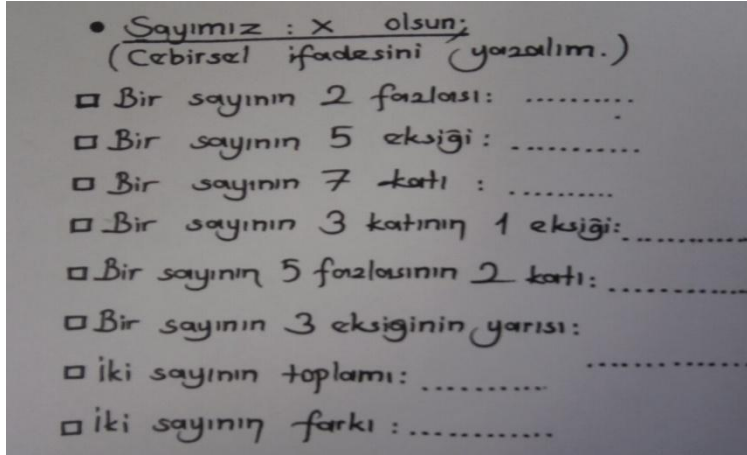 • Sayımız : x olsun;
(Cebirsel ifadesini yazalım.)
□ Bir sayının 2 fazlası: ..........
□ Bir sayının 5 eksiği : ...........
□ Bir sayının 7 katı : .........
□ Bir sayının 3 katının 1 eksiği: ............
□ Bir sayının 5 fazlasının 2 katı: ............
□ Bir sayının 3 eksiginin yarısı: .............
□ İki sayının toplamı: ..........
□ İki sayının farkı : ............